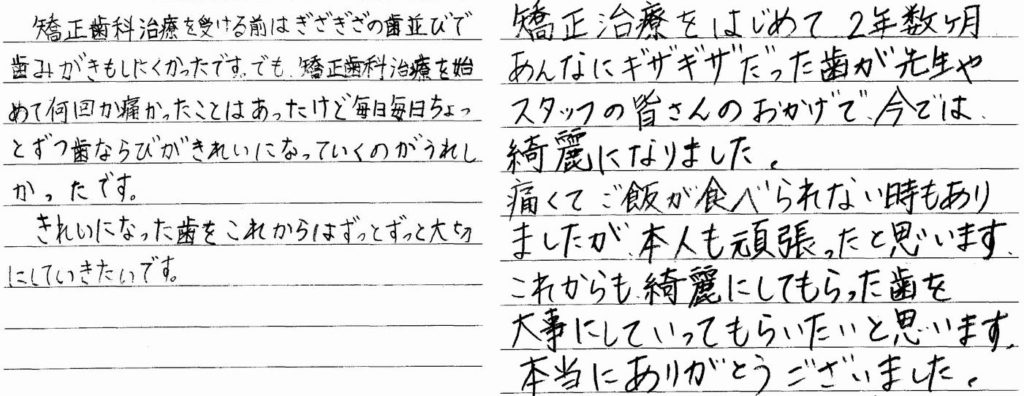 矯正歯科治療を受ける前はぎざぎざの歯並びで
歯みがきもしにくかったです。でも、矯正歯科治療を始
めて何回か痛かったことはあったけど毎日毎日ちょっ
とずつ歯ならびがきれいになっていくのがうれし
かったです。
きれいになった歯をこれからはずっとずっと大切
にしていきたいです。
矯正治療をはじめて2年数ヶ月
あんなにギザギザだった歯が先生や
スタッフの皆さんのおかげで、今では
綺麗になりました。
痛くてご飯が食べられない時もあり
ましたが、本人も頑張ったと思います。
これからも、綺麗にしてもらった歯を
大事にしていってもらいたいと思います。
本当にありがとうございました。